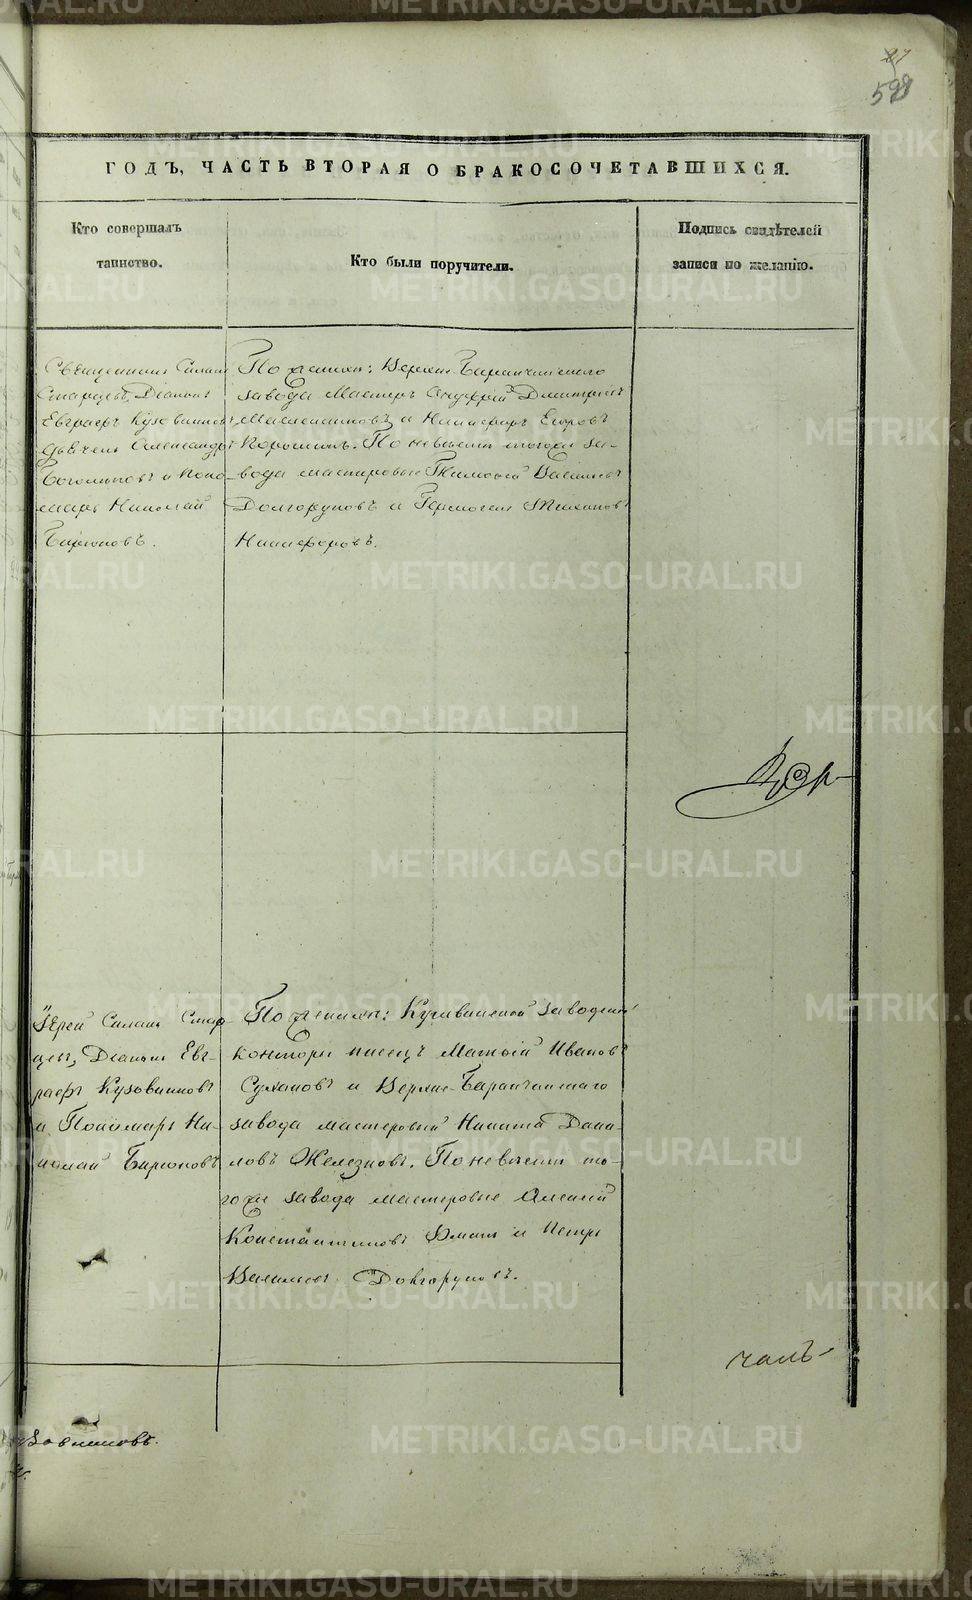 27
ГОДЪ, ЧАСТЬ ВТОРАЯ О БРАКОСОЧЕТАВШИХСЯ.
Кто совершалъ
таинство.
Кто были поручители.
Подпись свидѣтелей
записи по желанію.
Священникъ Силант
Старцевъ, Діаконъ
Евграфъ Кузовниковъ
Дьячекъ Александръ
Богомоловъ и Поно-
марь Николай
Бирюковъ.
По женихѣ: Верхне Баранчинскаго
завода Мастеръ Андрей Дмитріевъ
и Никифоръ Егоровъ
Порошинъ. По невѣстѣ тогоже за-
вода мастеровые Тимофей Васильевъ
Долгоруковъ и Гермогенъ
Никифоровъ.
Іерей Силант Стар-
цевъ, Діаконъ Ев-
графъ Кузовниковъ
и Пономарь Ни-
колай Бирюковъ
По женихѣ: Кушвинской заводской
конторы писецъ Матвій Ивановъ
Сухановъ и Верхне-Баранчинскаго
завода мастеровый Никита Дани-
ловъ Железновъ. По невѣстѣ то-
гоже завода мастеровые Алексій
Константиновъ и Петръ
Васильевъ Долгоруковъ.
чалъ
METRIKI.GASO-URAL.RU